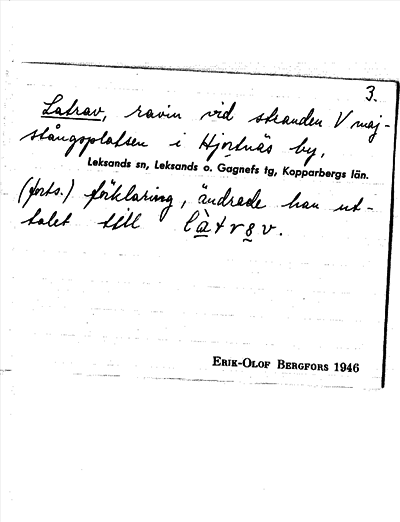 3.
Latrav, ravin vid stranden V maj-
stångsplatsen i Hjortnäs by,
Leksands sn, Leksands o. Gagnefs tg, Kopparbergs län.
(forts.) förklaring, ändrade han ut-
talet till
ERIK-OLOF BERGFORS 1946